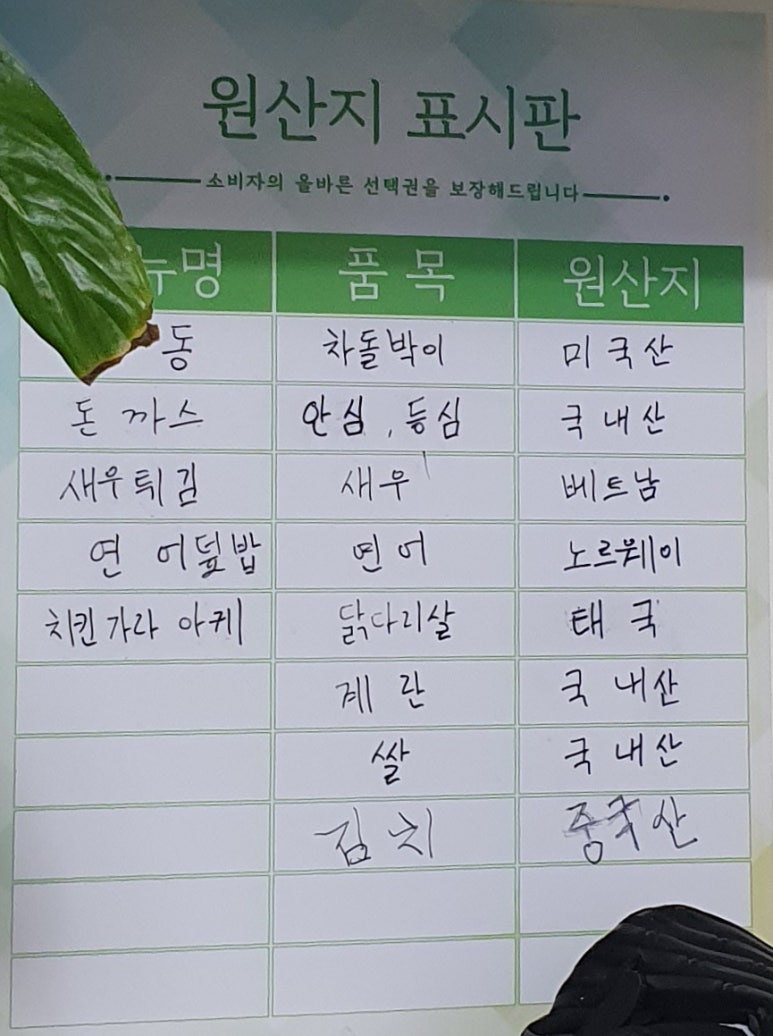 원산지 표시판
소비자의 올바른 선택권을 보장해드립니다
뉴명 품목 원산지
동 차돌박이 미국산
돈까스 안심, 등심 국내산
새우튀김 새우 베트남
연어덮밥 연어 노르웨이
치킨가라아케 닭다리살 태국
계란 국내산
쌀 국내산
김치 중국산